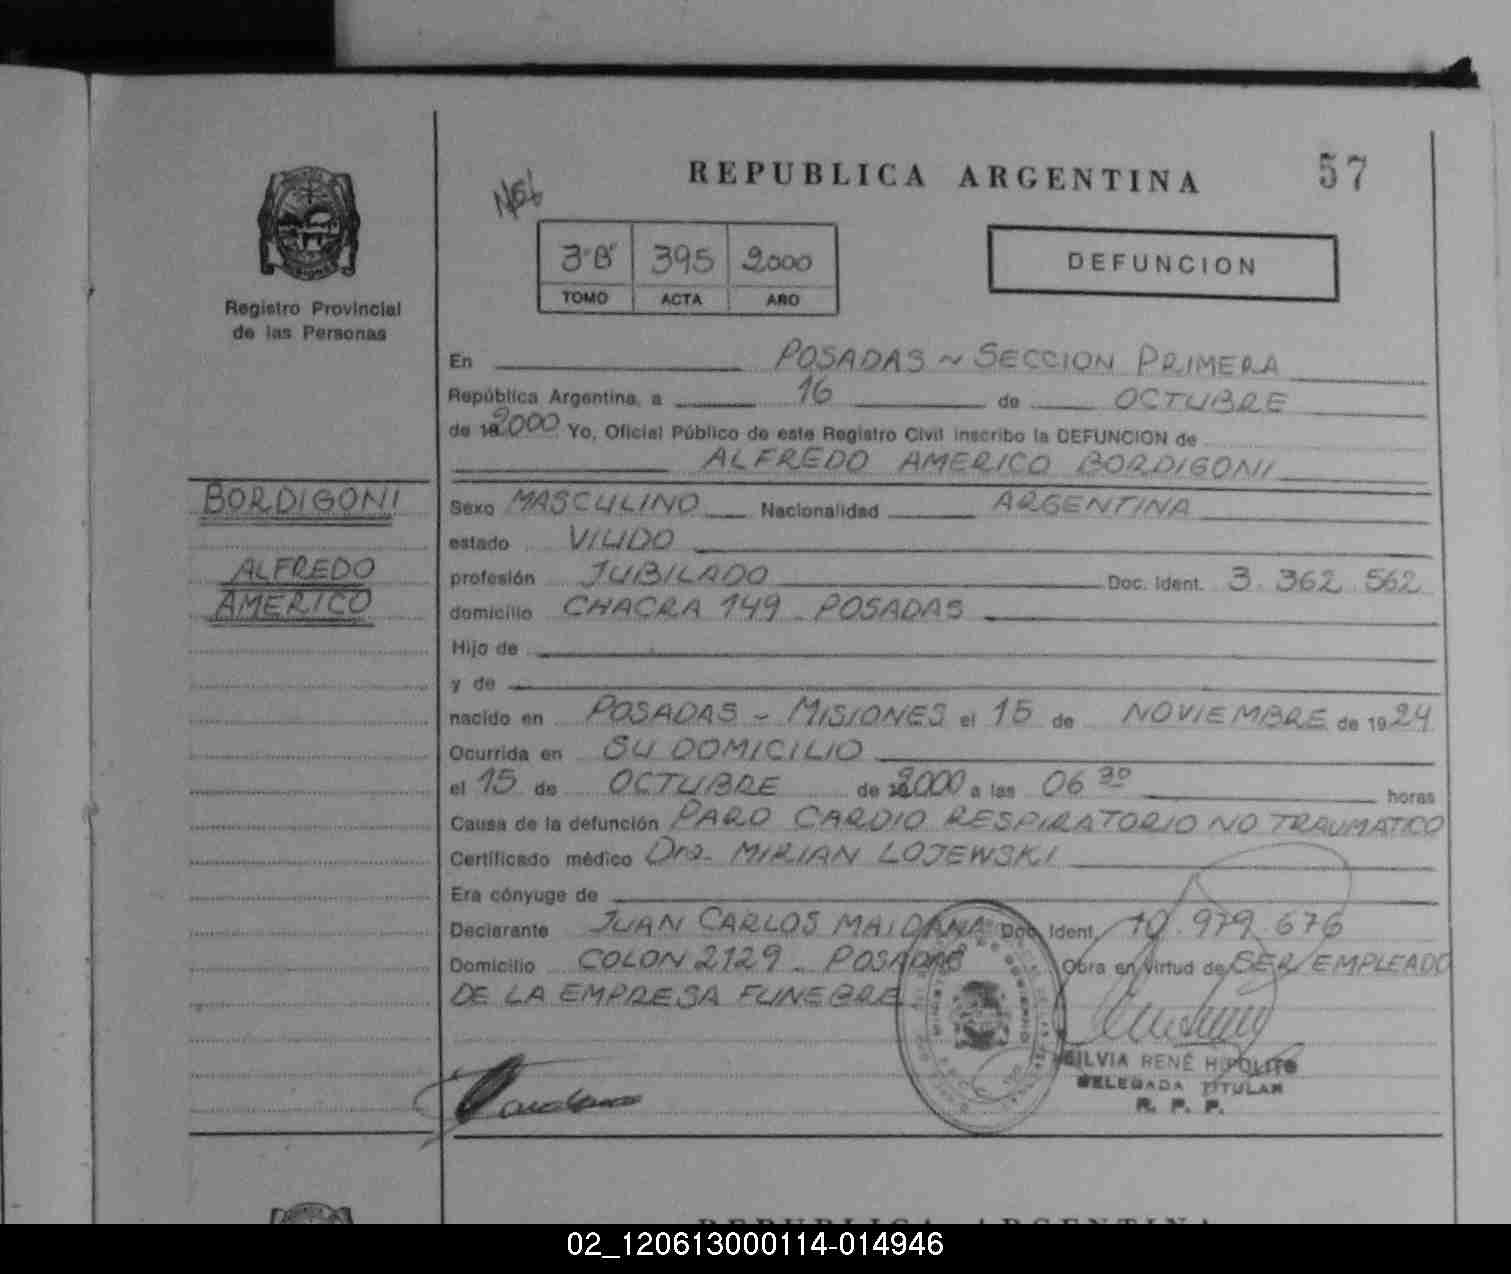 REPUBLICA ARGENTINA
57
3°B° 395 2000
TOMO ACTA AÑO
DEFUNCION
Registro Provincial
de las Personas
BORDIGONI
ALFREDO
AMERICO
En POSADAS ~ SECCION PRIMERA
República Argentina, a 16 de OCTUBRE
de 2000 Yo, Oficial Público de este Registro Civil inscribo la DEFUNCION de
ALFREDO AMERICO BORDIGONI
Sexo MASCULINO Nacionalidad ARGENTINA
estado VIUDO
profesión JUBILADO Doc. Ident. 3.362.562
domicilio CHACRA 149 - POSADAS
Hijo de
y de
nacido en POSADAS - MISIONES el 15 de NOVIEMBRE de 1924
Ocurrida en SU DOMICILIO
el 15 de OCTUBRE de 2000 a las 06 30 horas
Causa de la defunción PARO CARDIO RESPIRATORIO NO TRAUMATICO
Certificado médico Dra. MIRIAN LOJEWSKI
Era cónyuge de
Declarante JUAN CARLOS MAIDANA Doc. Ident. 10.979.676
Domicilio COLON 2129 - POSADAS Obra en virtud de SER EMPLEADO
DE LA EMPRESA FUNEBRE
SILVIA RENÉ HIPOLITO
DELEGADA TITULAR
R. P. P.
REPUBLICA ARGENTINA
02_120613000114-014946